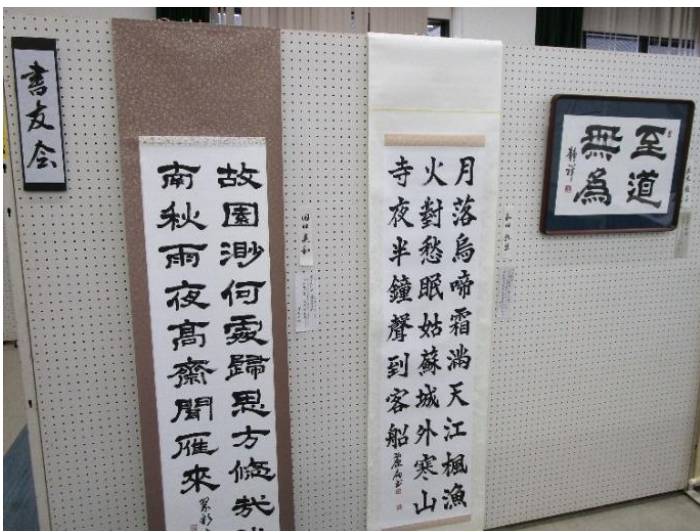 書友会
故園渺何處歸思方悠哉
南秋雨夜高齋聞雁來
月落烏啼霜滿天江楓漁
火對愁眠姑蘇城外寒山
寺夜半鐘聲到客船
至道
無為